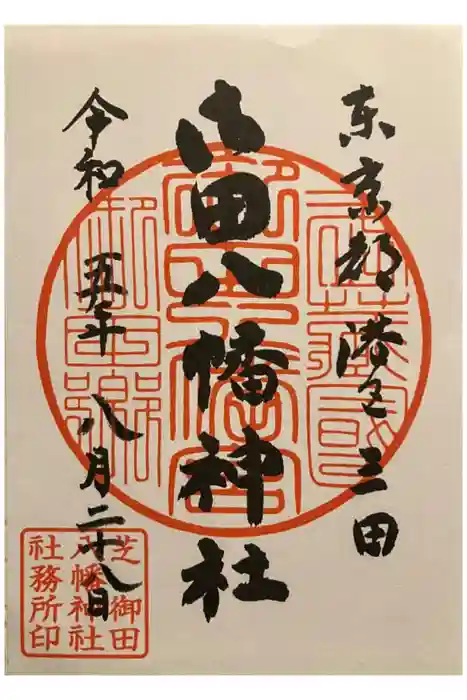 東京都港区三田
御田八幡神社
令和五年八月二十八日
武藏國
芝御田
八幡神社
社務所印